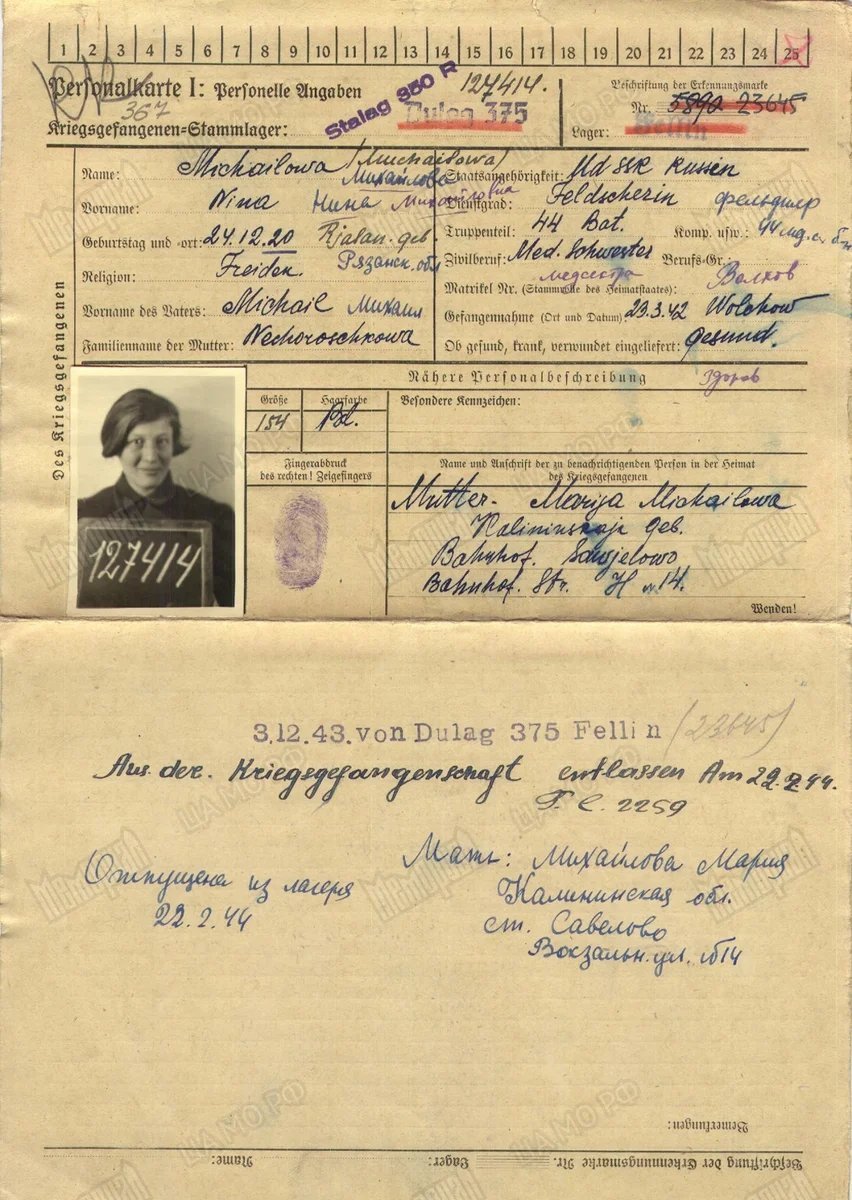 1 2 3 4 5 6 7 8 9 10 11 12 13 14 15 16 17 18 19 20 21 22 23 24 25
Personalkarte I: Personelle Angaben
367
Kriegsgefangenen=Stammlager:
Stalag 350 R
127414.
Dulag 375
Beschriftung der Erkennungsmarke
Nr. 5890 23645
Lager: Fellin
Des Kriegsgefangenen
Name: Michailowa /Muchailowa/
Михайлова
Vorname: Nina Нина Михайловна
Geburtstag und =ort: 24.12.20 Rjasan. geb.
Рязанск. обл
Religion: Freiden.
Vorname des Vaters: Michail Михаил
Familienname der Mutter: Nechoroschkowa
Staatsangehörigkeit: UdSSR Russin
Dienstgrad: Feldscherin фельдшер
Truppenteil: 44 Bat. Komp. usw.: 44 мд.
Zivilberuf: Med. Schwester Berufs=Gr.:
медсестра
Matrikel Nr. (Stammrolle des Heimatstaates): Волхов
Gefangennahme (Ort und Datum) 23.3.42 Wolchow
Ob gesund, krank, verwundet eingeliefert: gesund.
Nähere Personalbeschreibung здоров
Größe Haarfarbe Besondere Kennzeichen:
154 Bl.
Fingerabdruck
des rechten! Zeigefingers
Name und Anschrift der zu benachrichtigenden Person in der Heimat
des Kriegsgefangenen
Mutter- Marija Michailowa
Kalininskaja Geb.
Bahnhof. Sawjelowo
Bahnhof. Str. H № 14.
127414
Wenden!
3.12.43. von Dulag 375 Fellin (23645)
Aus der. Kriegsgefangenschaft entlassen Am 22.2.44.
2259
Отпущена из лагеря
22.2.44
Мать: Михайлова Мария
Калининская обл.
ст. Савелово
Вокзальн. ул. 14
Bemerkungen:
Beschriftung der Erkennungsmarke Nr. Lager: Name:
ЦА МО РФ